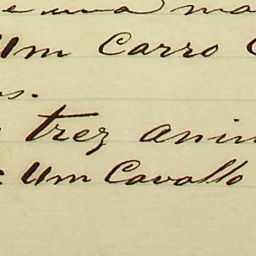 e uma ma
Um Carro C
os.
trez anim
: Um Cavallo